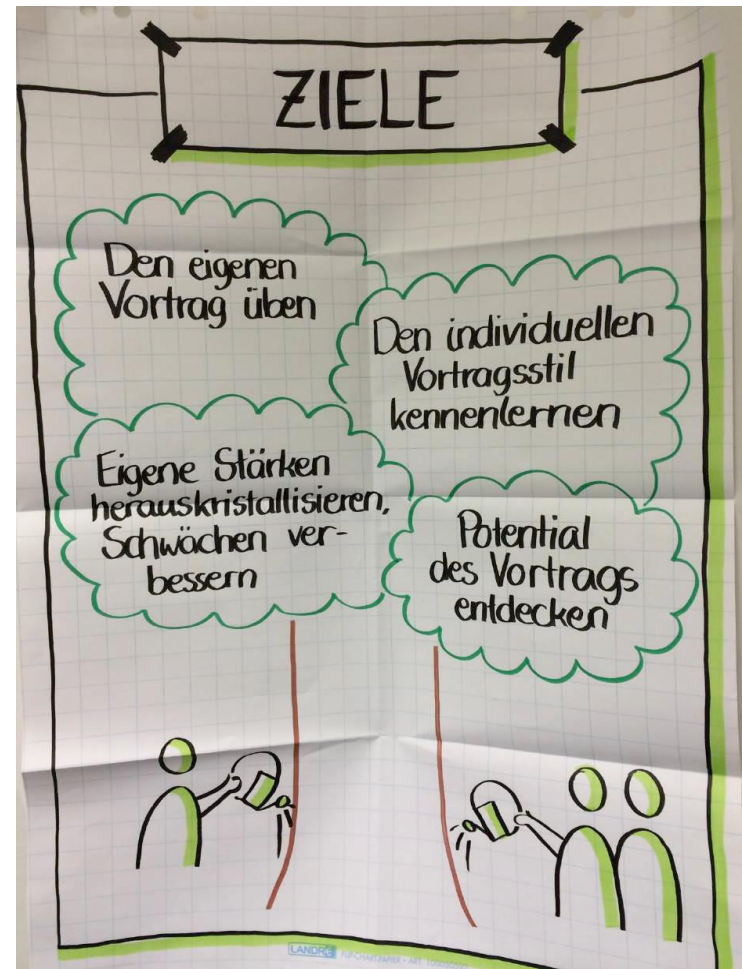 ZIELE
Den eigenen
Vortrag üben
Den individuellen
Vortragsstil
kennenlernen
Eigene Stärken
herauskristallisieren,
Schwächen ver-
bessern
Potential
des Vortrags
entdecken
LANDRÉ